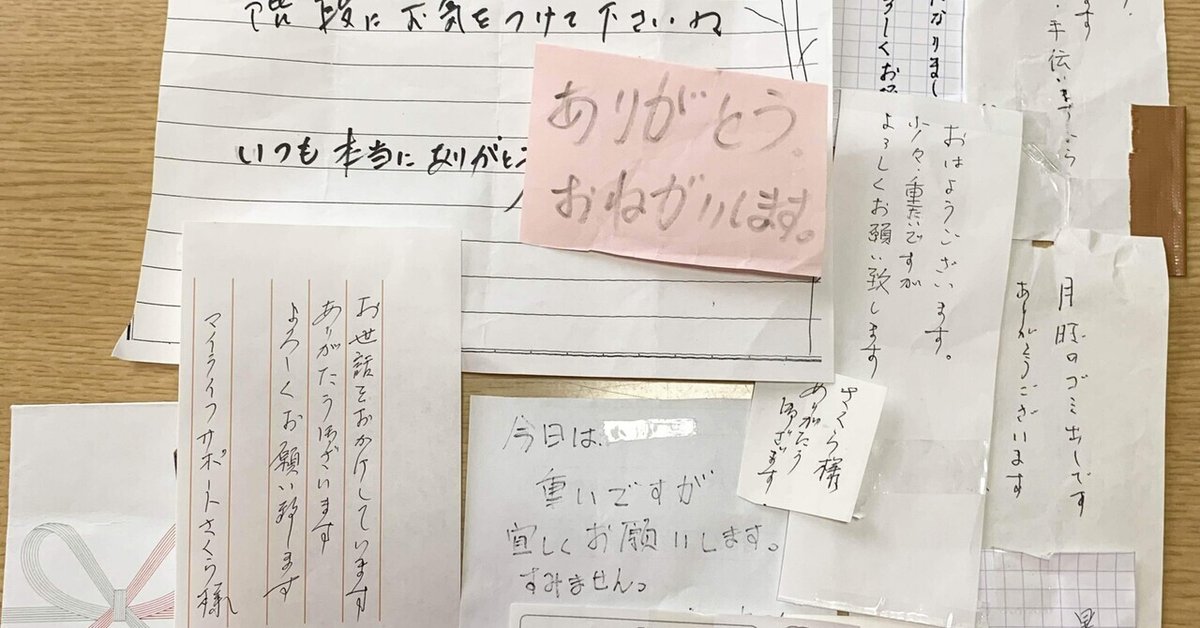 階段にお気をつけて下さいね
いつも本当にありがとう
ありがとう。
おねがいします。
おはようございます。
少々重たいですが
よろしくお願い致します
手伝います
月曜のゴミ出しです
ありがとうございます
さくら様
ありがたう
御ざます
お世話をおかけしています
ありがたう御ざいます
よろしくお願い致します
マイライフサポートさくら様
今日は、
重いですが
宜しくお願いします。
すみません。